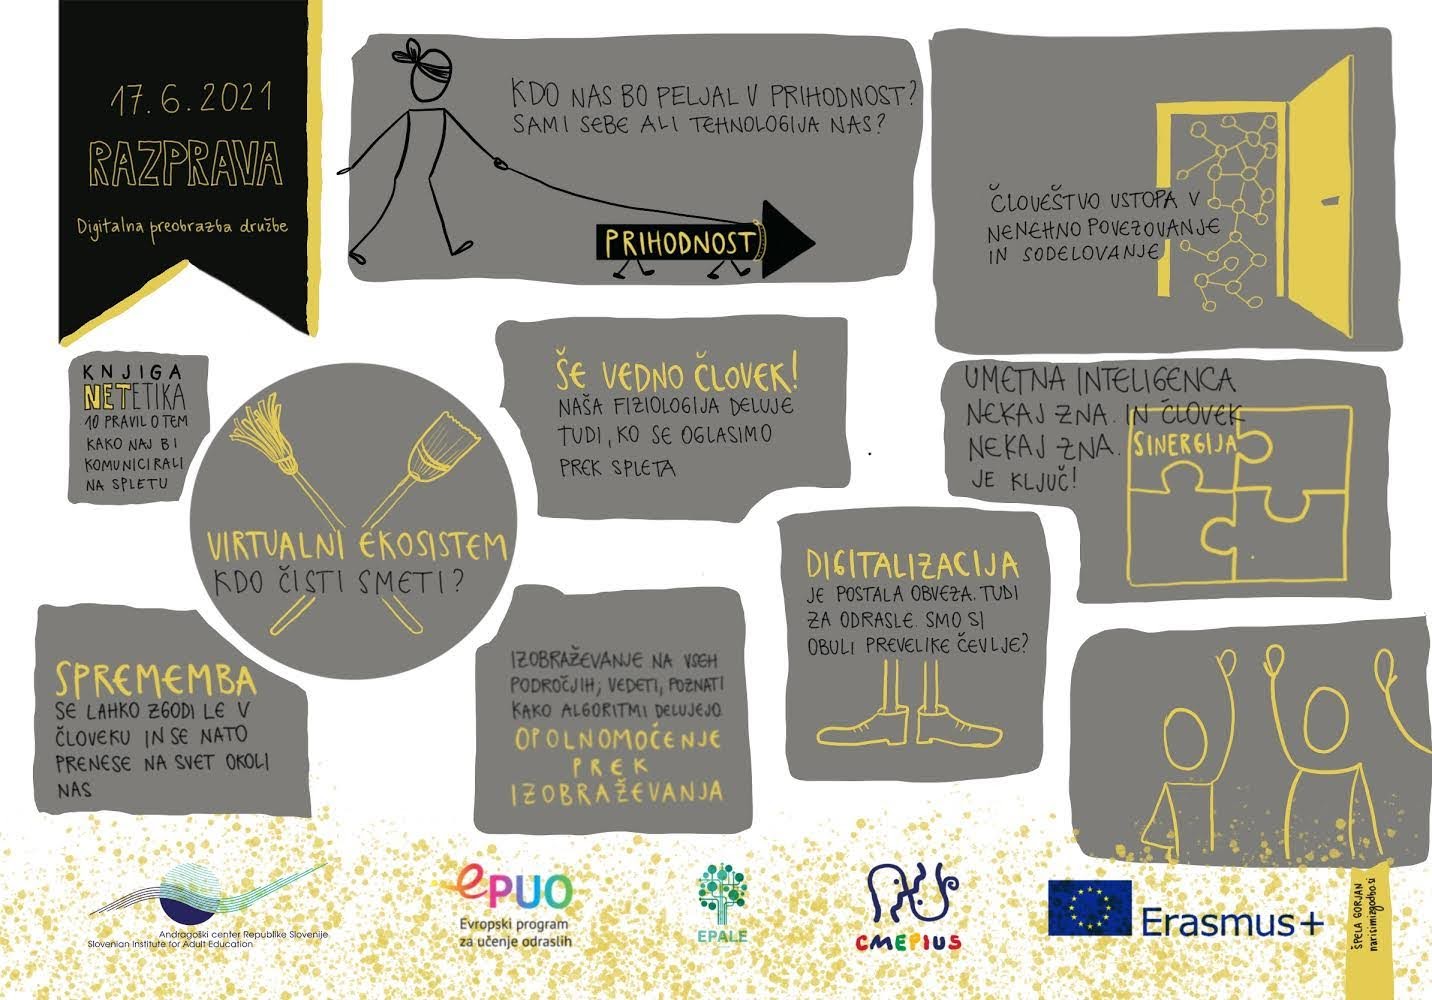 17.6.2021
RAZPRAVA
Digitalna preobrazba družbe
KDO NAS BO PELJAL V PRIHODNOST?
SAMI SEBE ALI TEHNOLOGIJA NAS?
PRIHODNOST
ČLOVEŠTVO VSTOPA V
NENEHNO POVEZOVANJE
IN SODELOVANJE
KNJIGA
NETETIKA
10 PRAVIL O TEM
KAKO NAJ BI
KOMUNICIRALI
NA SPLETU
VIRTUALNI EKOSISTEM
KDO ČISTI SMETI?
ŠE VEDNO ČLOVEK!
NAŠA FIZIOLOGIJA DELUJE
TUDI, KO SE OGLASIMO
PREK SPLETA
UMETNA INTELIGENCA
NEKAJ ZNA. IN ČLOVEK
NEKAJ ZNA. SINERGIJA
JE KLJUČ!
SPREMEMBA
SE LAHKO ZGODI LE V
ČLOVEKU IN SE NATO
PRENESE NA SVET OKOLI
NAS
IZOBRAŽEVANJE NA VSEH
PODROČJIH; VEDETI, POZNATI
KAKO ALGORITMI DELUJEJO
OPOLNOMOČENJE
PREK
IZOBRAŽEVANJA
DIGITALIZACIJA
JE POSTALA OBVEZA. TUDI
ZA ODRASLE. SMO SI
OBULI PREVELIKE ČEVLJE?
Andragoški center Republike Slovenije
Slovenian Institute for Adult Education
ePUO
Evropski program
za učenje odraslih
EPALE
CMEPIUS
Erasmus+
ŠPELA GORJAN
narisimizgodbo.si